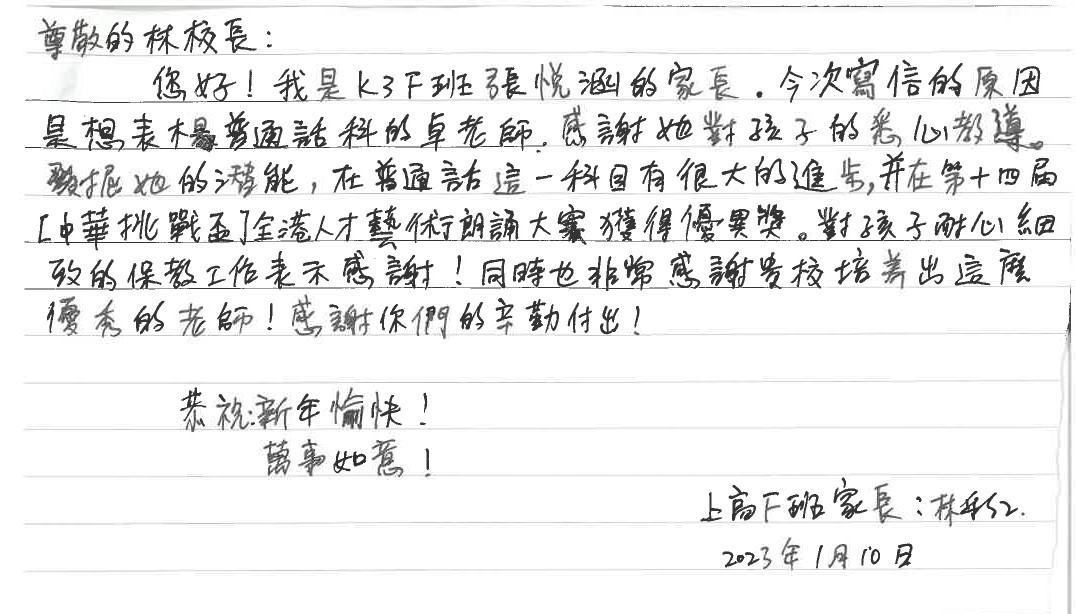 尊敬的林校長：
您好！我是K3F班張悦涵的家長。今次寫信的原因
是想表揚普通話科的卓老師，感謝她對孩子的悉心教導。
發掘她的潛能，在普通話這一科目有很大的進步，并在第十四届
[中華挑戰盃]全港人才藝術朗誦大賽獲得優異獎。對孩子耐心細
致的保教工作表示感謝！同時也非常感謝貴校培養出這麽
優秀的老師！感謝你們的辛勤付出！
恭祝：新年愉快！
萬事如意！
上高F班家長：林
2023年1月10日